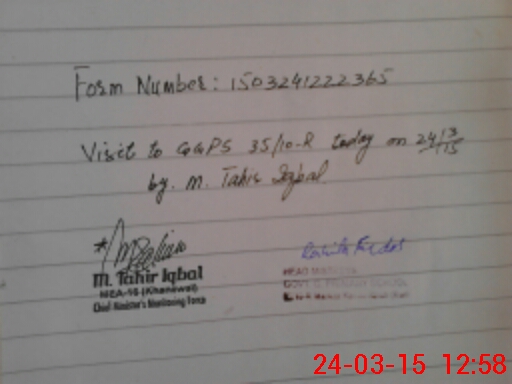 Form Number: 1503241222365
Visit to GGPS 35/10-R today on 24/3/15
by. M. Tahir Iqbal.
M. Tahir Iqbal
MEA-15 (Khanewal)
Chief Minister's Monitoring Force
HEAD
GOVT. G. PRIMARY SCHOOL
24-03-15 12:58